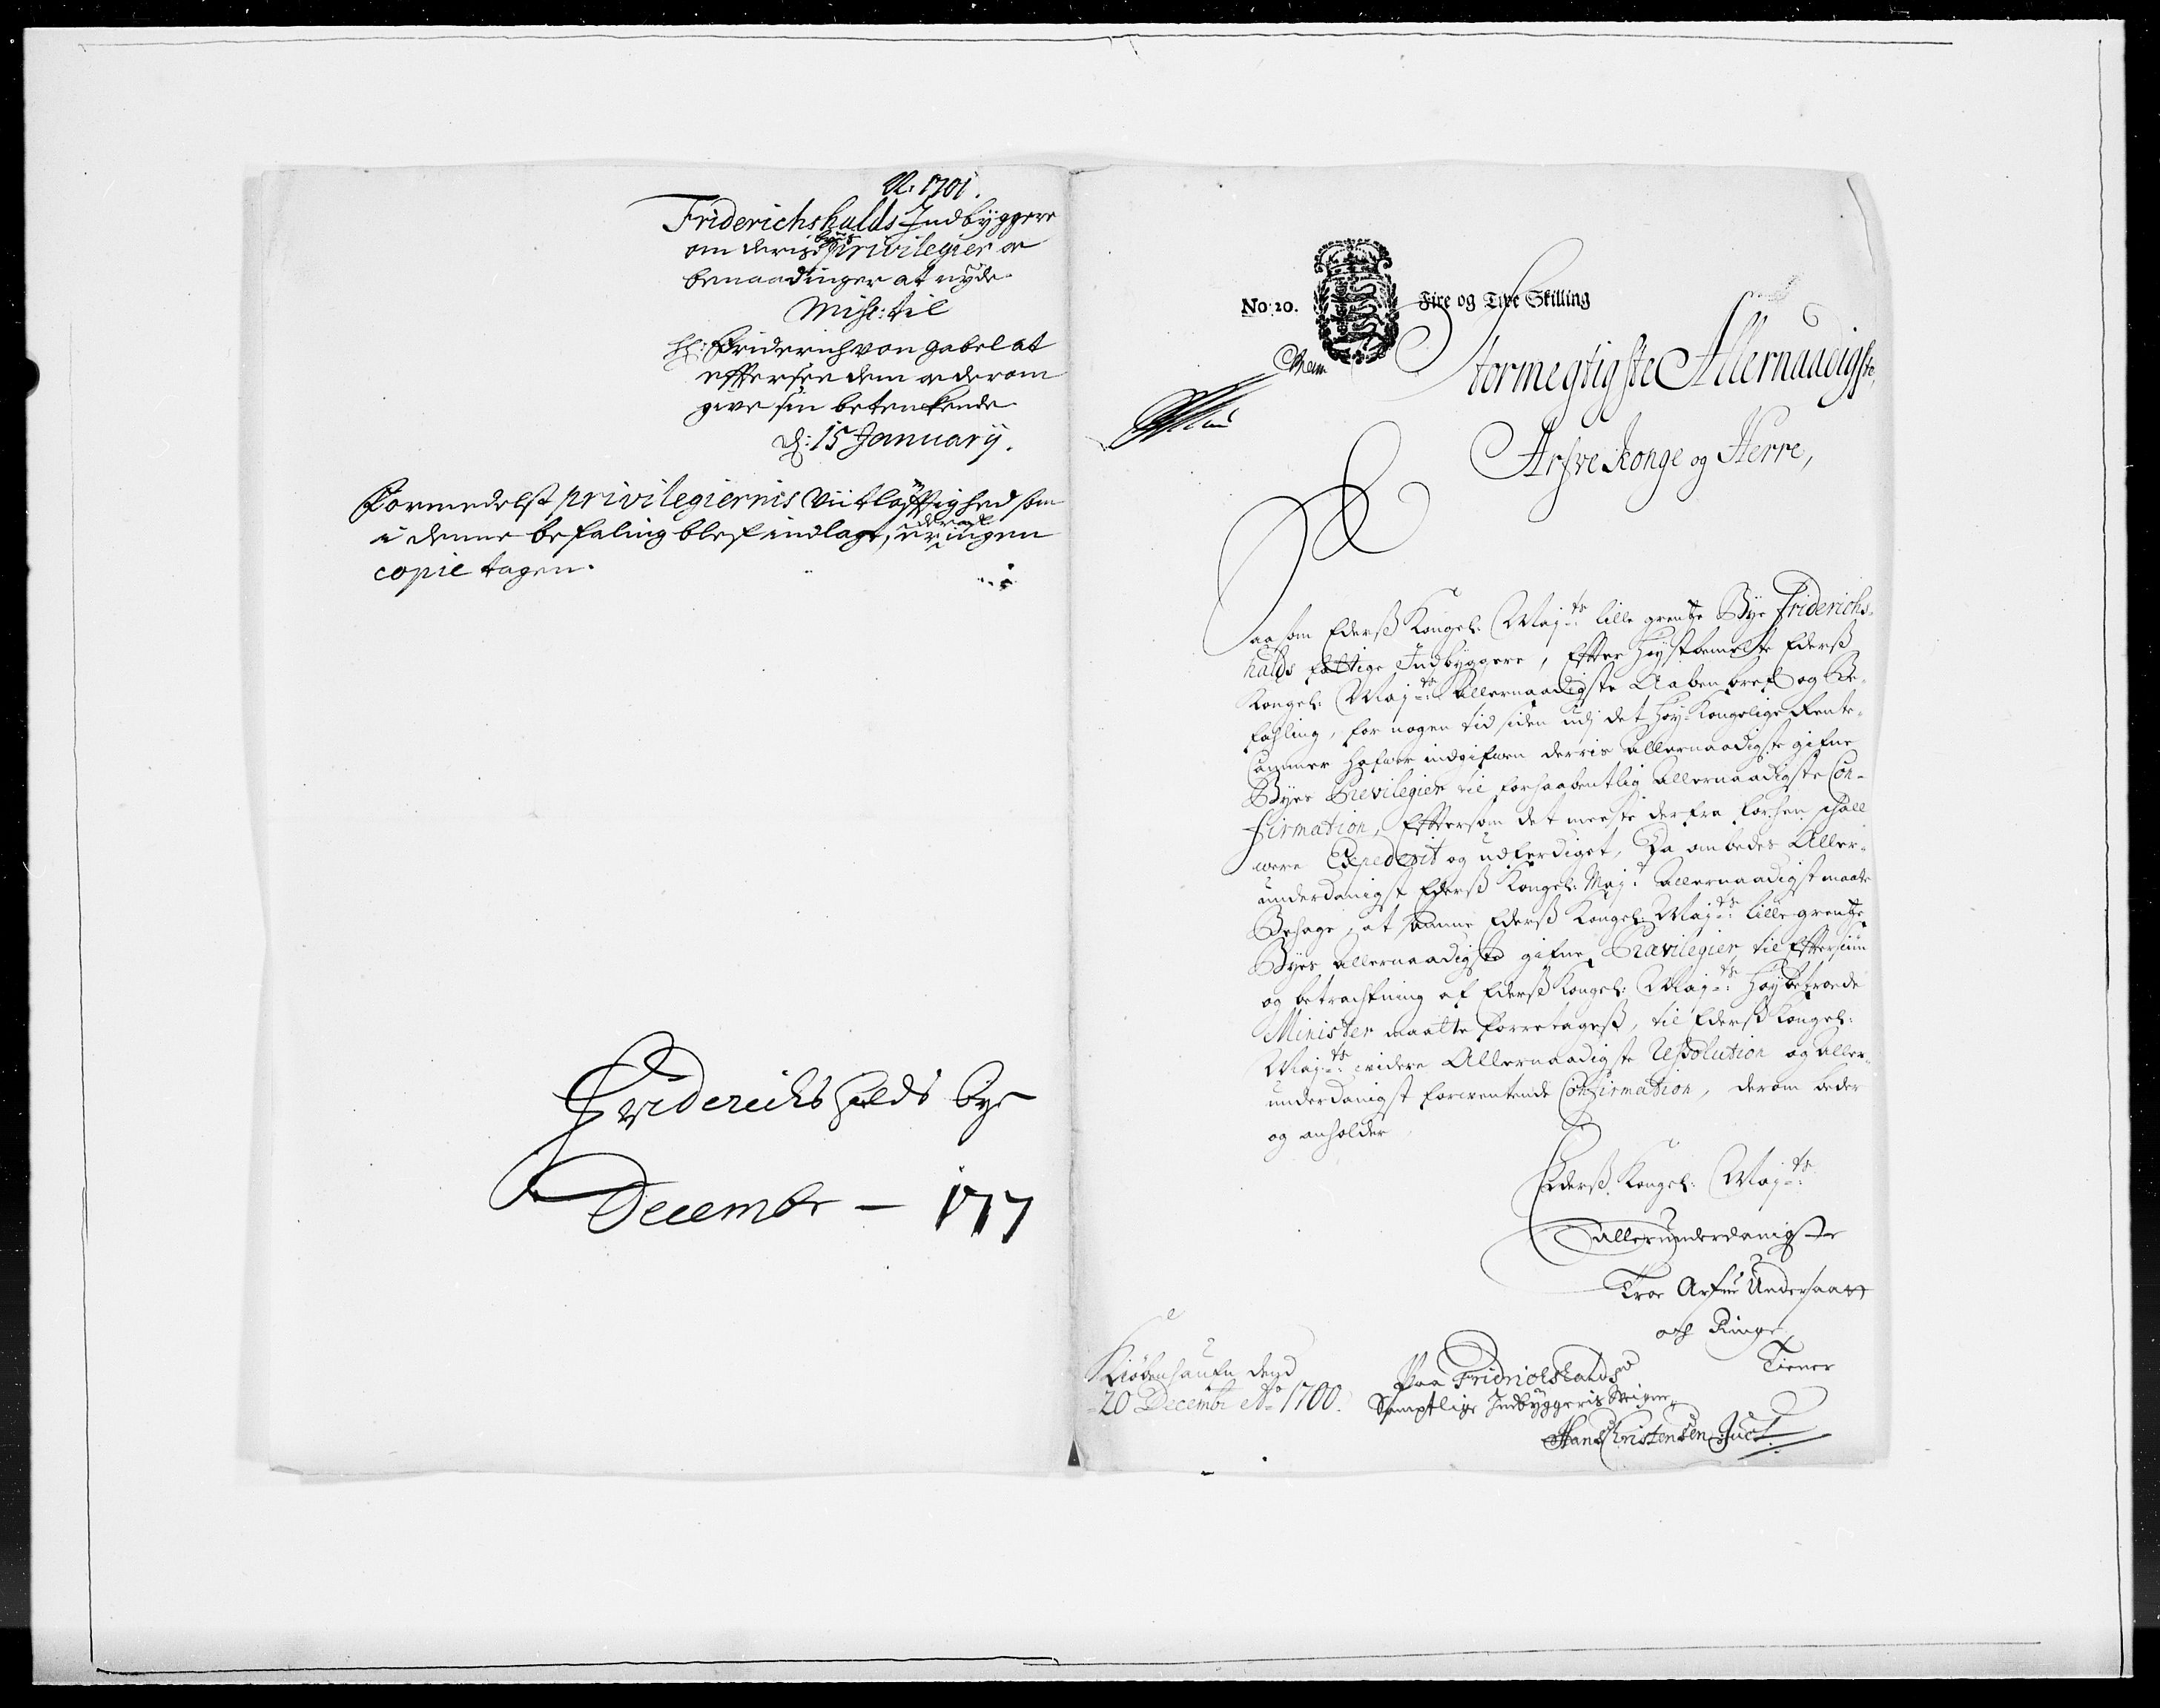 N. 1701.
Friderichshalds Indbyggere
om deris byes privilegier oc
benaadinger at nyde.
Miss: til
H: Friderich von Gabel at
effersee dem oc derom
give sin betenkende
d: 15 Januarij.
Formedelst privilegiernis viitløfftighed som
i denne befaling blef indlagt, er deraf ingen
copie tagen.
Friderichshalds bye
Decembr — 1717
No: 20. Fire og Tive Skilling
Stormegtigste Allernaadigste,
Arfve Konge og Herre,
Saasom Ederß Kongel: Mayts: lille grentze Bye Friderichs-
halds fattige Indbyggere, Effter høystbemelte Ederß
Kongel: Mayts: allernaadigste Aabenbref og Be-
fahling, for nogen tid siden udj det høy-Kongelige Rente-
Cammer hafver indgifven derris allernaadigste gifne
Byes Previlegier til forhaabentlig allernaadigste Con-
firmation, Efftersom det meeste der fra forhen schall
were Expederit og udferdiget, Da ombedes Aller-
underdanigst Ederß Kongel: Mayt: allernaadigst maatte
Behage, at samme Ederß Kongel: Mayts: lille grentze
Byes allernaadigste gifne Prævilegier, til Effterseun
og betrachtning af Ederß Kongel: Mayts: høybetroede
Minister maatte forretageß, til Ederß Kongel:
Mayts: videre Allernaadigste Resolution og aller-
underdanigst forventende Confirmation, derom beder
og anholder
Ederß Kongel: Mayts:
allerunderdanigste
Troe Arfve Undersaatt
och Ringe
Tiener
Kiøbenhaufn dend
20 Decembr Ao 1700.
Paa Fridrichshalds
Samptlige Indbyggeris Veigne
Hans Christensen Juel